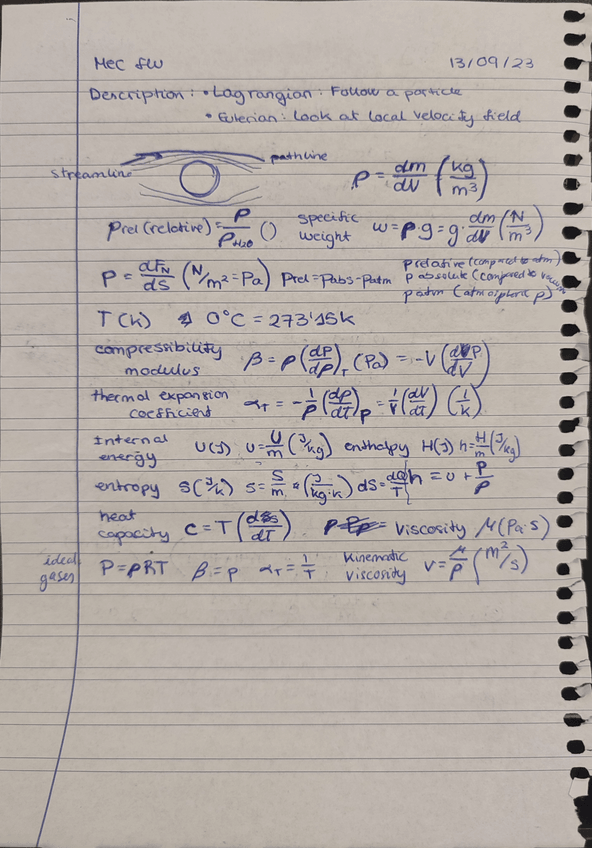 Mec flu 13/09/23
Description: • Lagrangian: Follow a particle
• Eulerian: Look at local velocity field
streamline pathline ρ = dm/dV (kg/m³)
ρrel (relative) = ρ/ρH₂O () specific weight w = ρ·g = g·dm/dV (N/m³)
P = dFN/dS (N/m² = Pa) Prel = Pabs - Patm
p relative (compared to atm)
p absolute (compared to vacuum)
p atm (atmospheric p)
T (K) 0°C = 273'15K
compressibility modulus β = ρ(dP/dρ)T (Pa) = -V(dP/dV)
thermal expansion coefficient αT = -1/ρ (dρ/dT)p = 1/V (dV/dT) (1/K)
Internal energy U(J) u = U/m (J/kg) enthalpy H(J) h = H/m (J/kg)
entropy S(J/K) s = S/m (J/kg·K) dS = dQ/T h = u + P/ρ
heat capacity c = T(ds/dT) viscosity μ(Pa·s)
ideal gases P = ρRT β = p αT = 1/T kinematic viscosity ν = μ/ρ (m²/s)